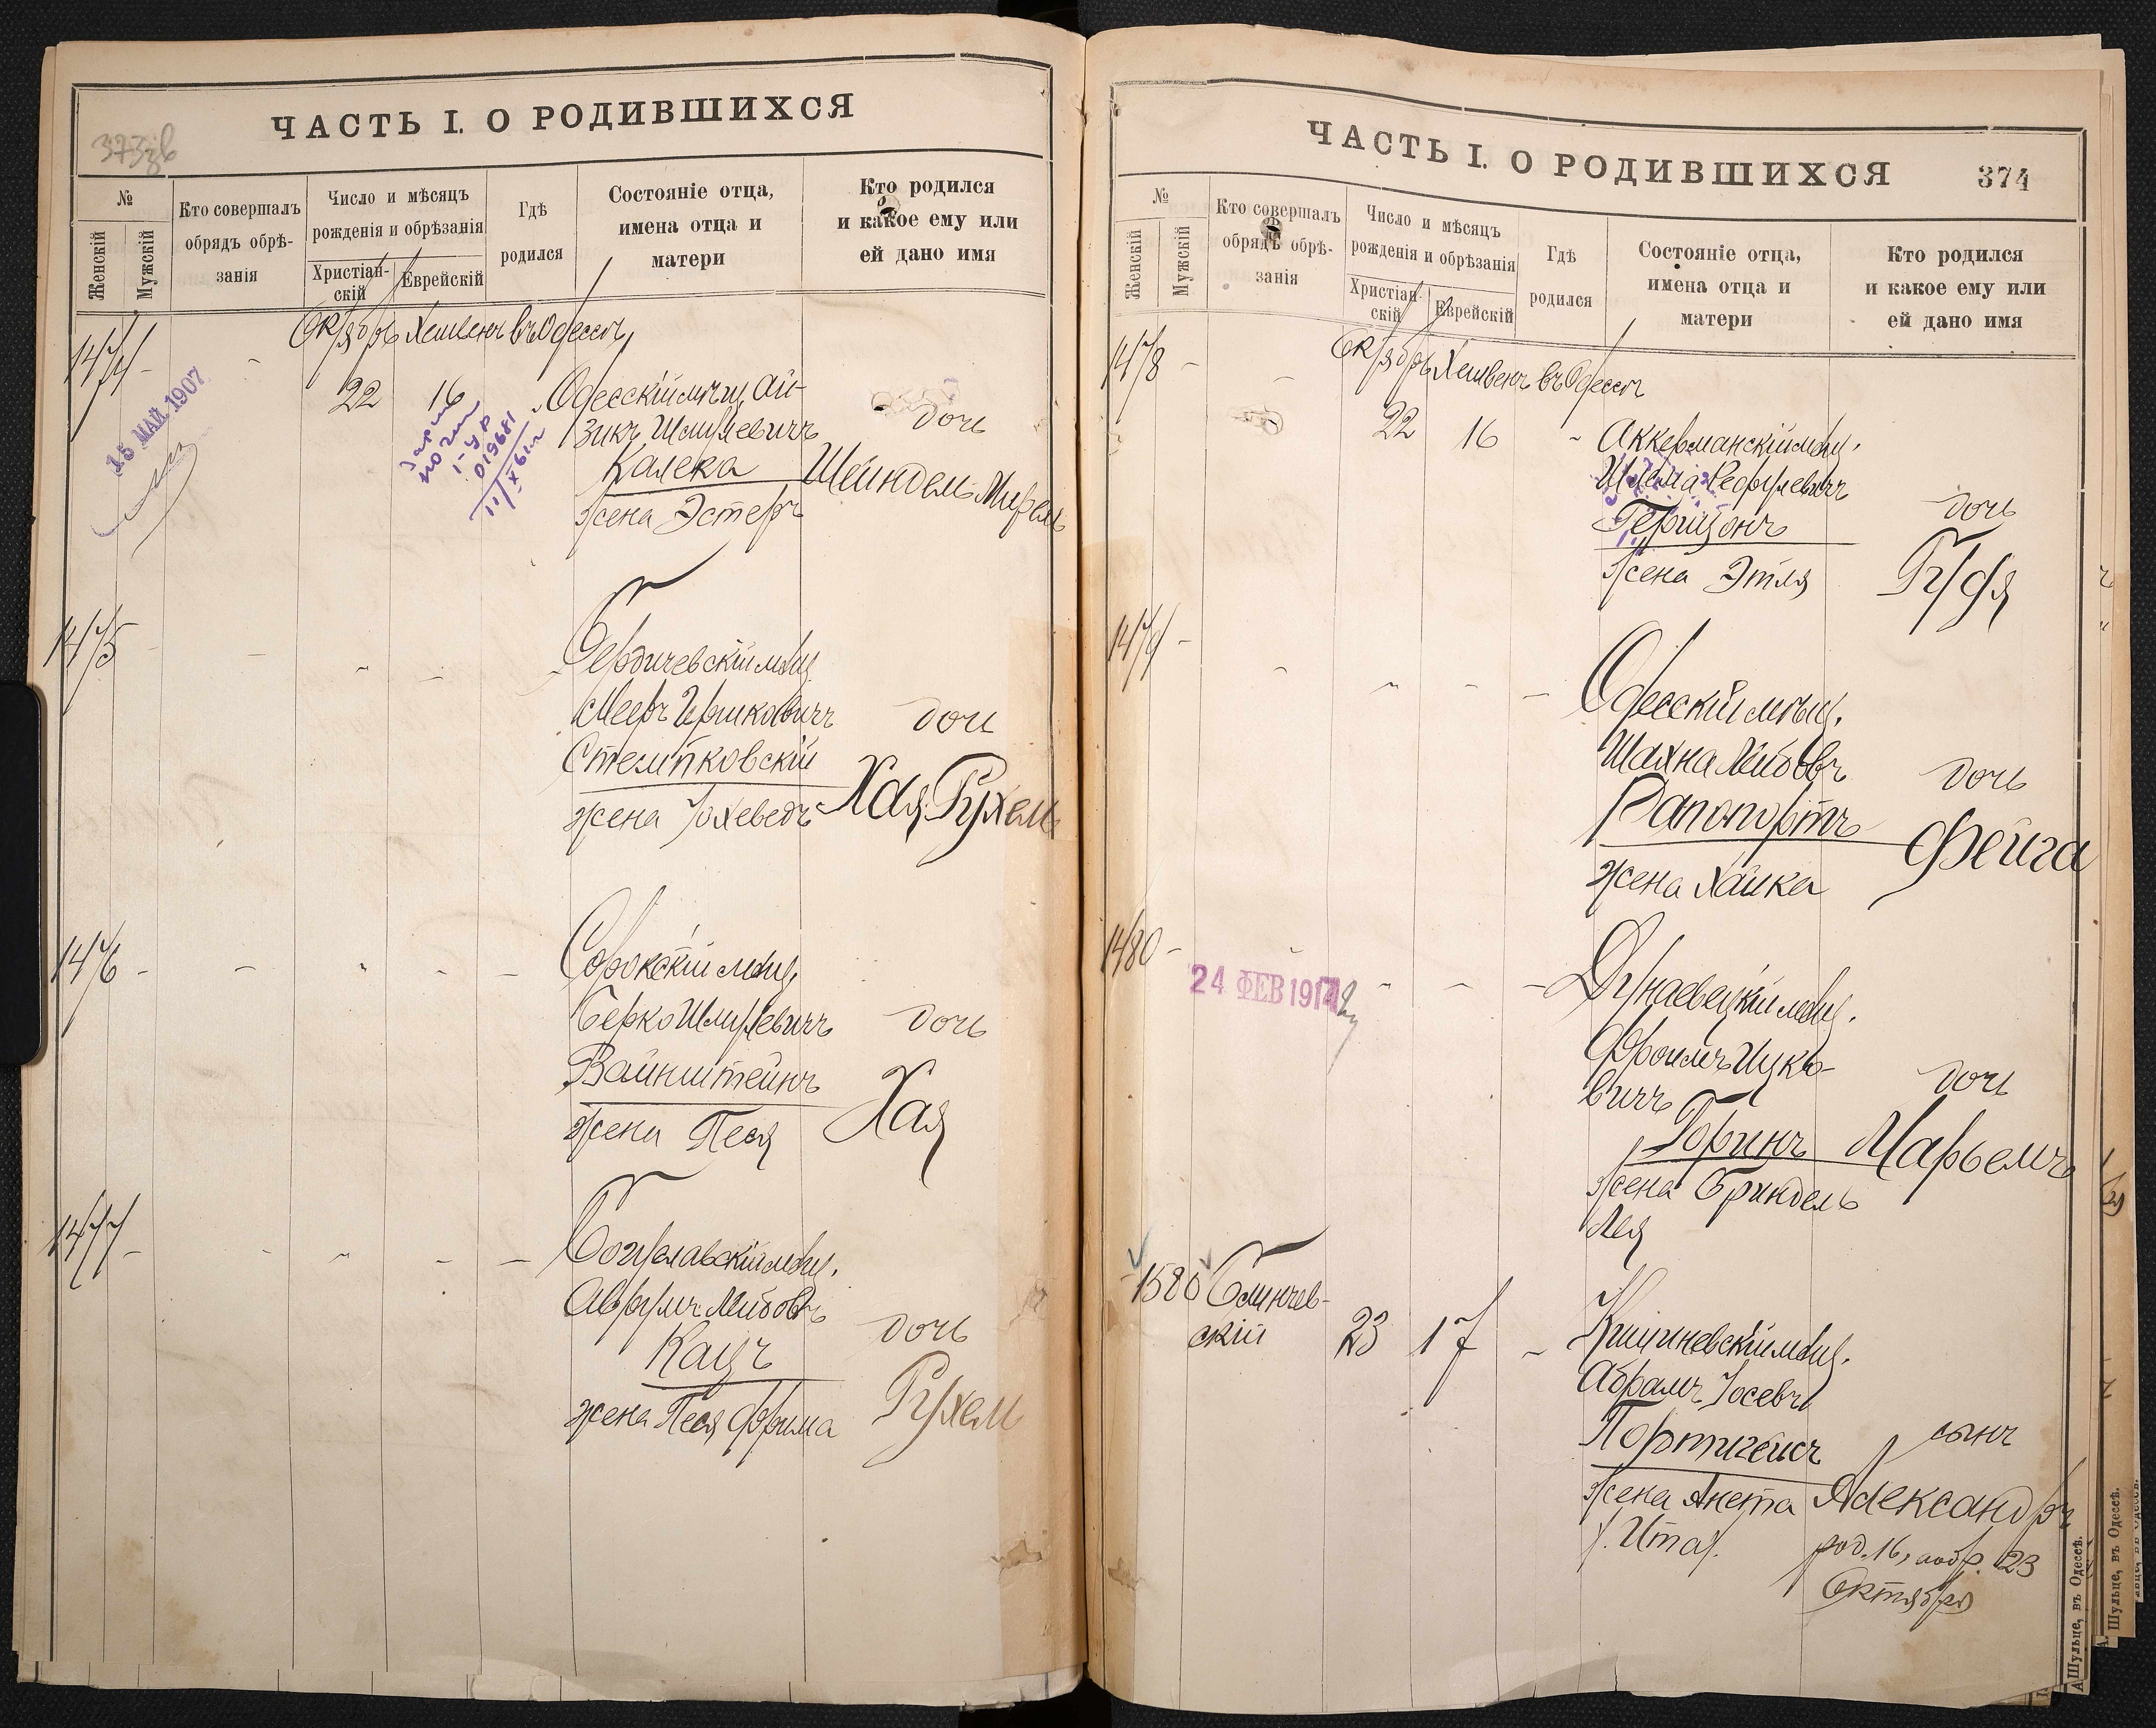 ЧАСТЬ I. О РОДИВШИХСЯ
№
Женскій
Мужскій
Кто совершалъ
обрядъ обрѣ-
занія
Число и мѣсяцъ
рожденія и обрѣзанія
Христіан-
скій
Еврейскій
Гдѣ
родился
Состояніе отца,
имена отца и
матери
Кто родился
и какое ему или
ей дано имя
Октябрь Хешвенъ въ Одессѣ
1474 -
15 МАЙ 1907
22 16
019681
Одесскій мѣщ. Ай-
зикъ Шмулевичъ
Калека
жена Эстеръ
дочь
Шейндель Мирель
1475
Бердичевскій мѣщ.
Мееръ Гершковичъ
жена Іохеведъ
дочь
Хая Рухель
1476 -
Сорокскій мѣщ.
Берко Шмулевичъ
Вайнштейнъ
жена Песя
дочь
Хая
1477 -
Богуславскій мѣщ.
Аврумъ Лейбовъ
Кацъ
жена Песя Фрима
дочь
Рухель
ЧАСТЬ I. О РОДИВШИХСЯ
374
№
Женскій
Мужскій
Кто совершалъ
обрядъ обрѣ-
занія
Число и мѣсяцъ
рожденія и обрѣзанія
Христіан-
скій
Еврейскій
Гдѣ
родился
Состояніе отца,
имена отца и
матери
Кто родился
и какое ему или
ей дано имя
Октябрь Хешвенъ въ Одессѣ
1478 -
22 16
Аккерманскій мѣщ.
Шлема
Гершзонъ
жена Этля
дочь
1479 -
Одесскій мѣщ.
Шахна Лейбовъ
Рапопортъ
жена Хайка
дочь
Фейга
1480 -
24 ФЕВ 191
Дунаевецкій мѣщ.
Фроимъ Ицко-
вичъ
Горинъ
жена Бриндель
Лея
дочь
Марьемъ
1580
Блинчев-
скій
23 17
Кишиневскій мѣщ.
Абрамъ Іосевъ
Портигейсъ
жена Анета
(Ита).
сынъ
Александръ
род. 16, а обр. 23
Октября
Шульце, въ Одессѣ.
Шульце, въ Одессѣ.